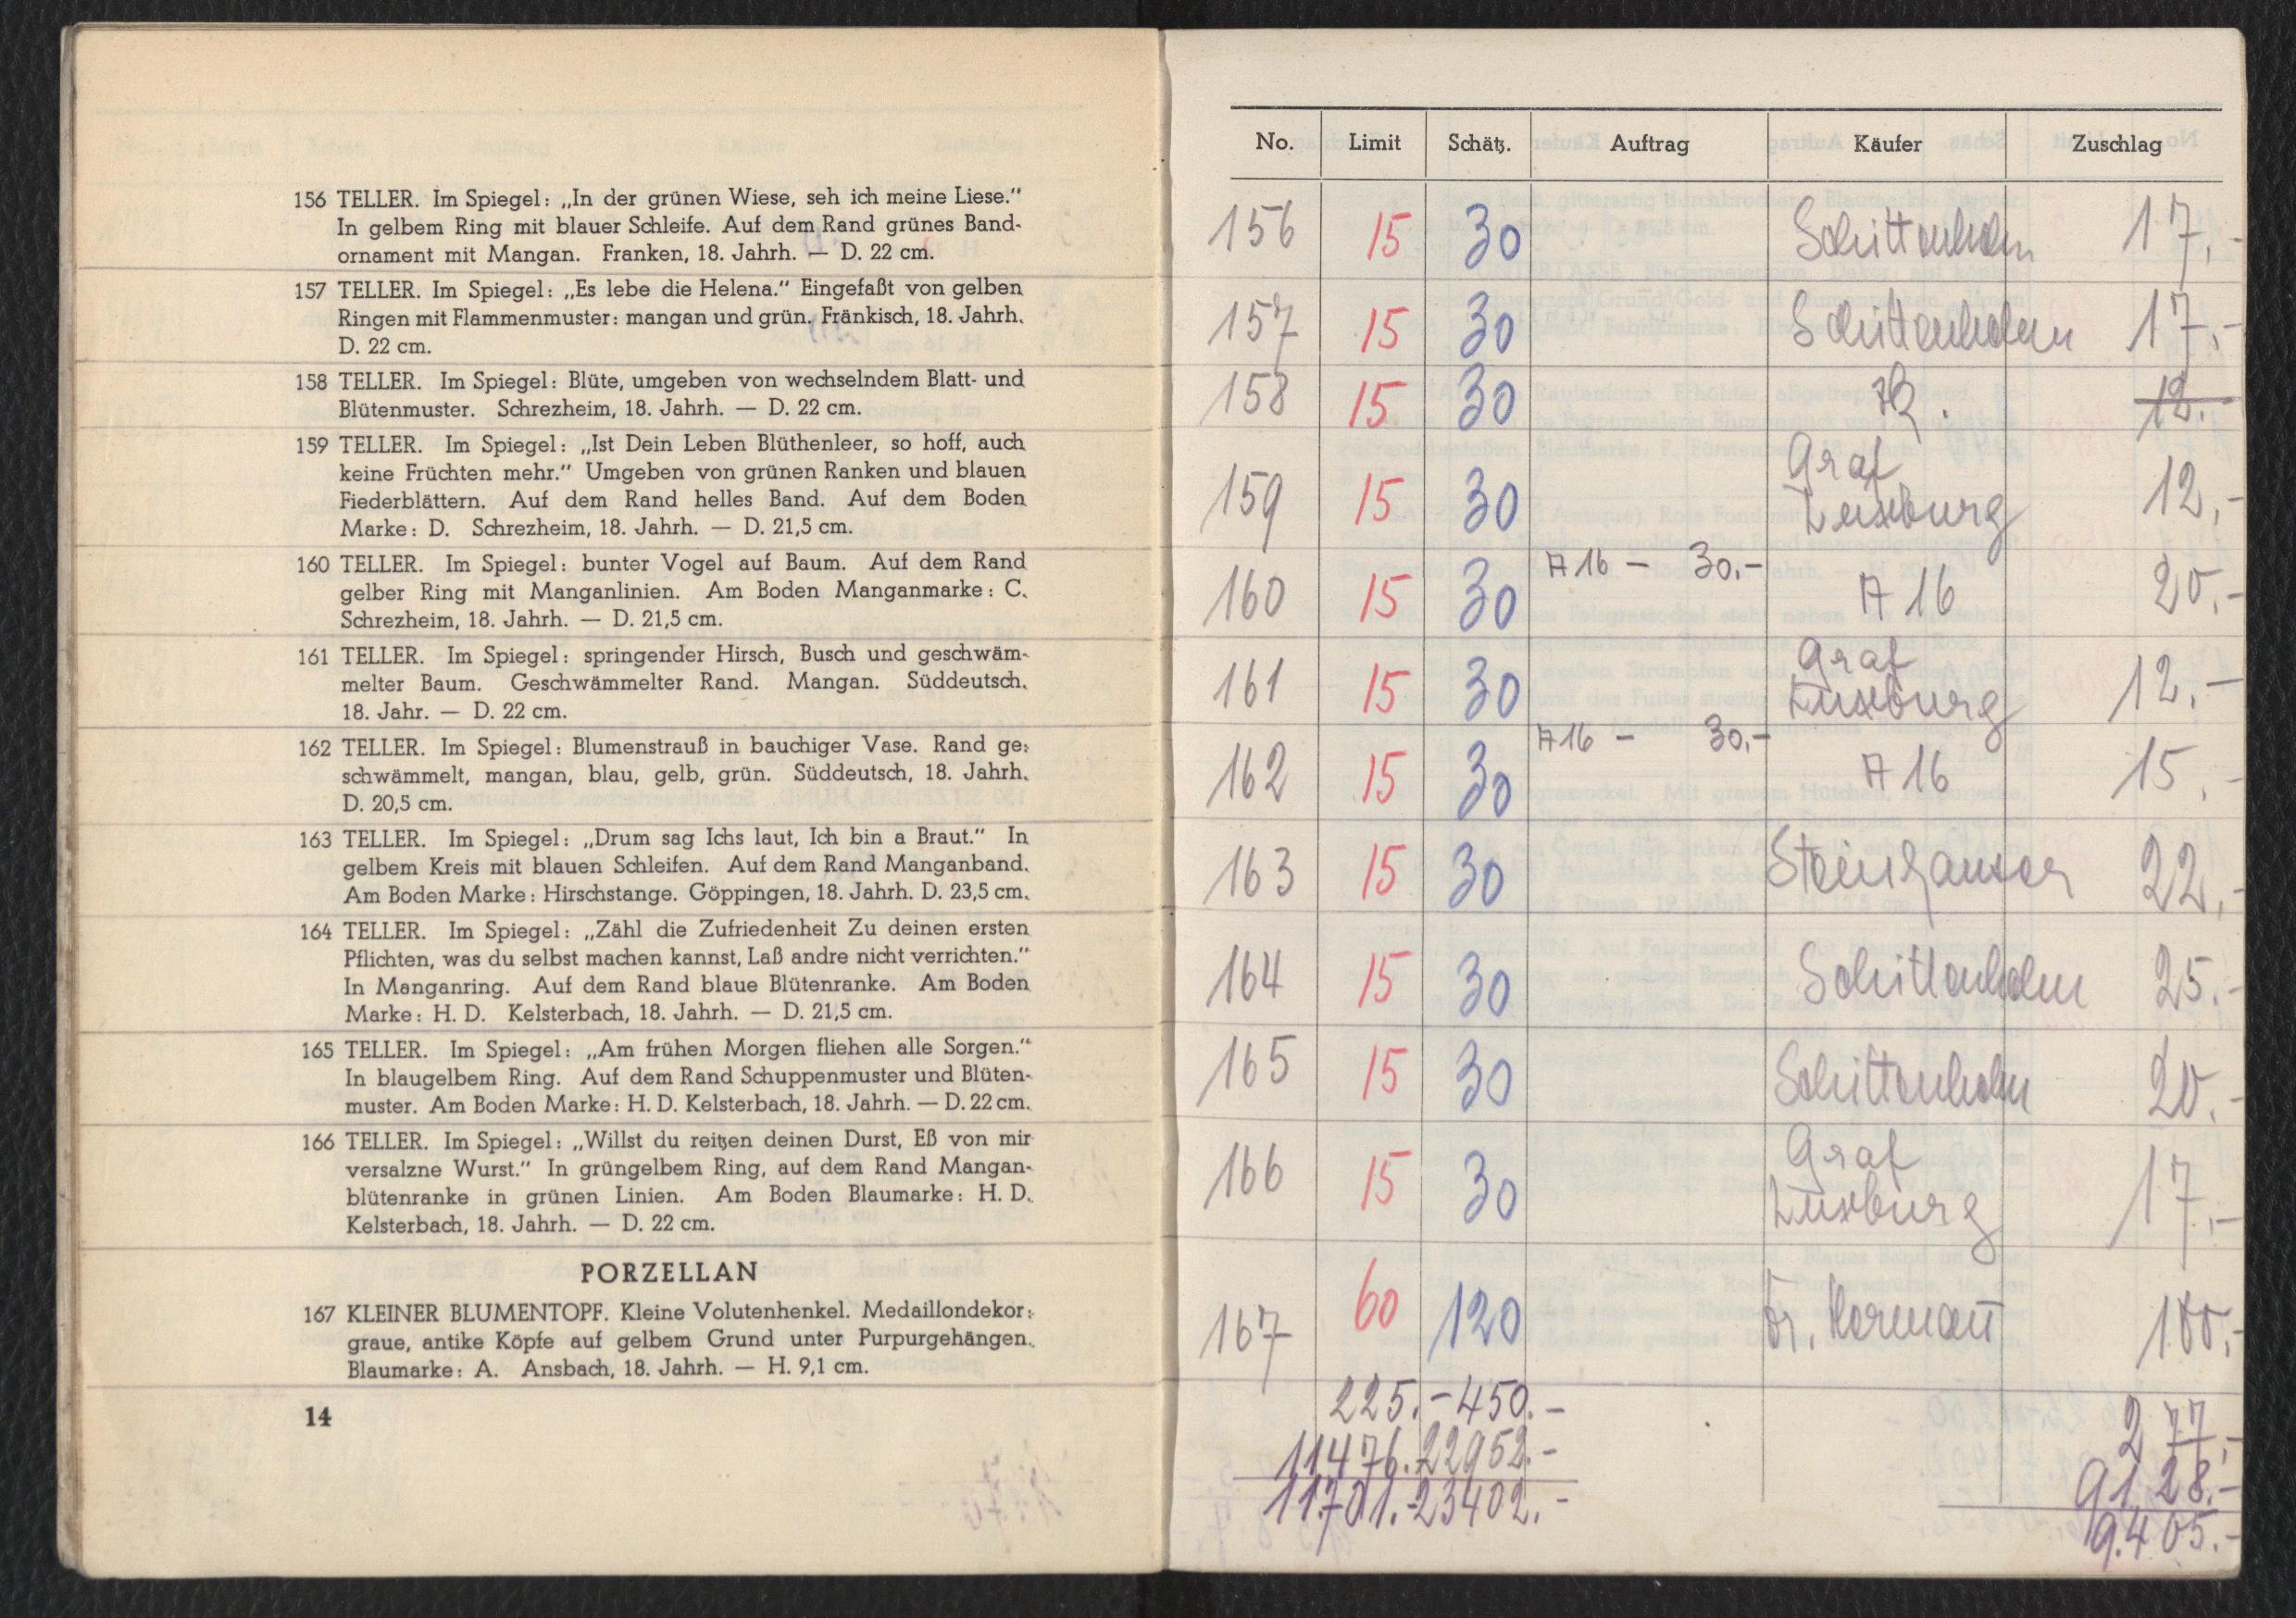 156 TELLER. Im Spiegel: „In der grünen Wiese, seh ich meine Liese.“
In gelbem Ring mit blauer Schleife. Auf dem Rand grünes Band-
ornament mit Mangan. Franken, 18. Jahrh. — D. 22 cm.
157 TELLER. Im Spiegel: „Es lebe die Helena.“ Eingefaßt von gelben
Ringen mit Flammenmuster: mangan und grün. Fränkisch, 18. Jahrh.
D. 22 cm.
158 TELLER. Im Spiegel: Blüte, umgeben von wechselndem Blatt- und
Blütenmuster. Schrezheim, 18. Jahrh. — D. 22 cm.
159 TELLER. Im Spiegel: „Ist Dein Leben Blüthenleer, so hoff, auch
keine Früchten mehr.“ Umgeben von grünen Ranken und blauen
Fiederblättern. Auf dem Rand helles Band. Auf dem Boden
Marke: D. Schrezheim, 18. Jahrh. — D. 21,5 cm.
160 TELLER. Im Spiegel: bunter Vogel auf Baum. Auf dem Rand
gelber Ring mit Manganlinien. Am Boden Manganmarke: C.
Schrezheim, 18. Jahrh. — D. 21,5 cm.
161 TELLER. Im Spiegel: springender Hirsch, Busch und geschwäm-
melter Baum. Geschwämmelter Rand. Mangan. Süddeutsch.
18. Jahr. — D. 22 cm.
162 TELLER. Im Spiegel: Blumenstrauß in bauchiger Vase. Rand ge-
schwämmelt, mangan, blau, gelb, grün. Süddeutsch, 18. Jahrh.
D. 20,5 cm.
163 TELLER. Im Spiegel: „Drum sag Ichs laut, Ich bin a Braut.“ In
gelbem Kreis mit blauen Schleifen. Auf dem Rand Manganband.
Am Boden Marke: Hirschstange. Göppingen, 18. Jahrh. D. 23,5 cm.
164 TELLER. Im Spiegel: „Zähl die Zufriedenheit Zu deinen ersten
Pflichten, was du selbst machen kannst, Laß andre nicht verrichten.“
In Manganring. Auf dem Rand blaue Blütenranke. Am Boden
Marke: H. D. Kelsterbach, 18. Jahrh. — D. 21,5 cm.
165 TELLER. Im Spiegel: „Am frühen Morgen fliehen alle Sorgen.“
In blaugelbem Ring. Auf dem Rand Schuppenmuster und Blüten-
muster. Am Boden Marke: H. D. Kelsterbach, 18. Jahrh. — D. 22 cm.
166 TELLER. Im Spiegel: „Willst du reitzen deinen Durst, Eß von mir
versalzne Wurst.“ In grüngelbem Ring, auf dem Rand Mangan-
blütenranke in grünen Linien. Am Boden Blaumarke: H. D.
Kelsterbach, 18. Jahrh. — D. 22 cm.
PORZELLAN
167 KLEINER BLUMENTOPF. Kleine Volutenhenkel. Medaillondekor:
graue, antike Köpfe auf gelbem Grund unter Purpurgehängen.
Blaumarke: A. Ansbach, 18. Jahrh. — H. 9,1 cm.
14
No. Limit Schätz. Auftrag Käufer Zuschlag
156 15 30 Schittenhelm 17,-
157 15 30 Schittenhelm 17.-
158 15 30 12.-
Graf
159 15 30 Luxburg 12,-
A 16 - 30.-
160 15 30 A 16 20.-
Graf
161 15 30 Luxburg 12.-
A 16 - 30.-
162 15 30 A 16 15.-
163 15 30 Steinhauser 22,-
164 15 30 Schittenhelm 25.-
165 15 30 Schittenhelm 20.-
Graf
166 15 30 Luxburg 17,-
167 60 120 Dr. Hermann 100,-
225.- 450.-
277,-
11476. 22952.-
9128.-
11701.- 23402.-
9.405.-